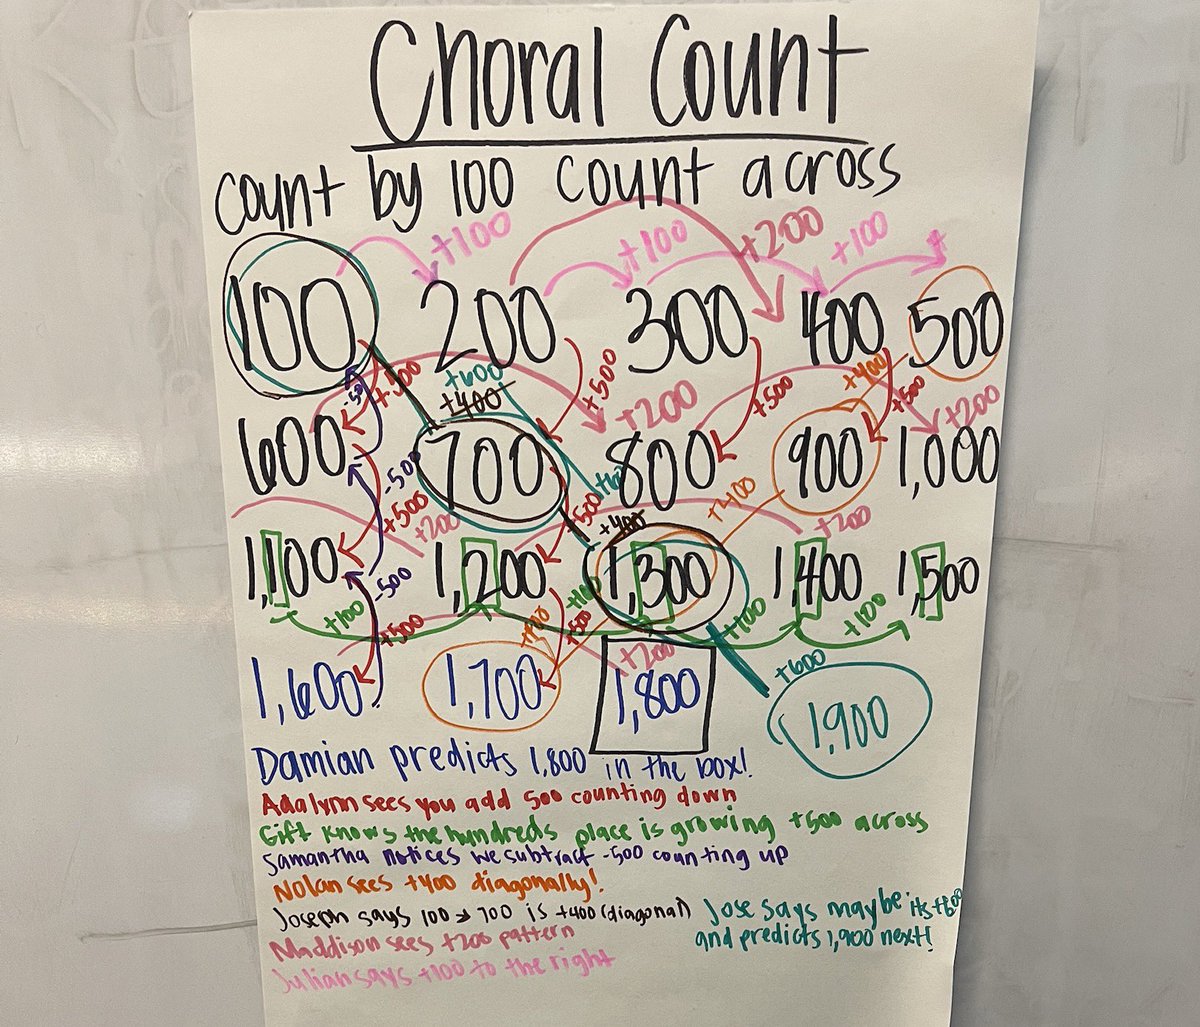 Choral Count
count by 100 count across
+100 +100 +200 +100
100 200 300 400 500
-500 +500 +600 +500 +500 +400 +500
+400 +200 +200
600 700 800 900 1,000
-500 +500 +200 +500 +400 +400 +200
1,100 1,200 1,300 1,400 1,500
-500 +100 +500 +100 +500 +100 +100
+200 +600
1,600 1,700 1,800 1,900
Damian predicts 1,800 in the box!
Adalynn sees you add 500 counting down
Gift knows the hundreds place is growing +500 across
Samantha notices we subtract -500 counting up
Nolan sees +400 diagonally!
Joseph says 100 → 700 is +400 (diagonal)
Jose says maybe its +600
and predicts 1,900 next!
Maddison sees +200 pattern
Julian says +100 to the right